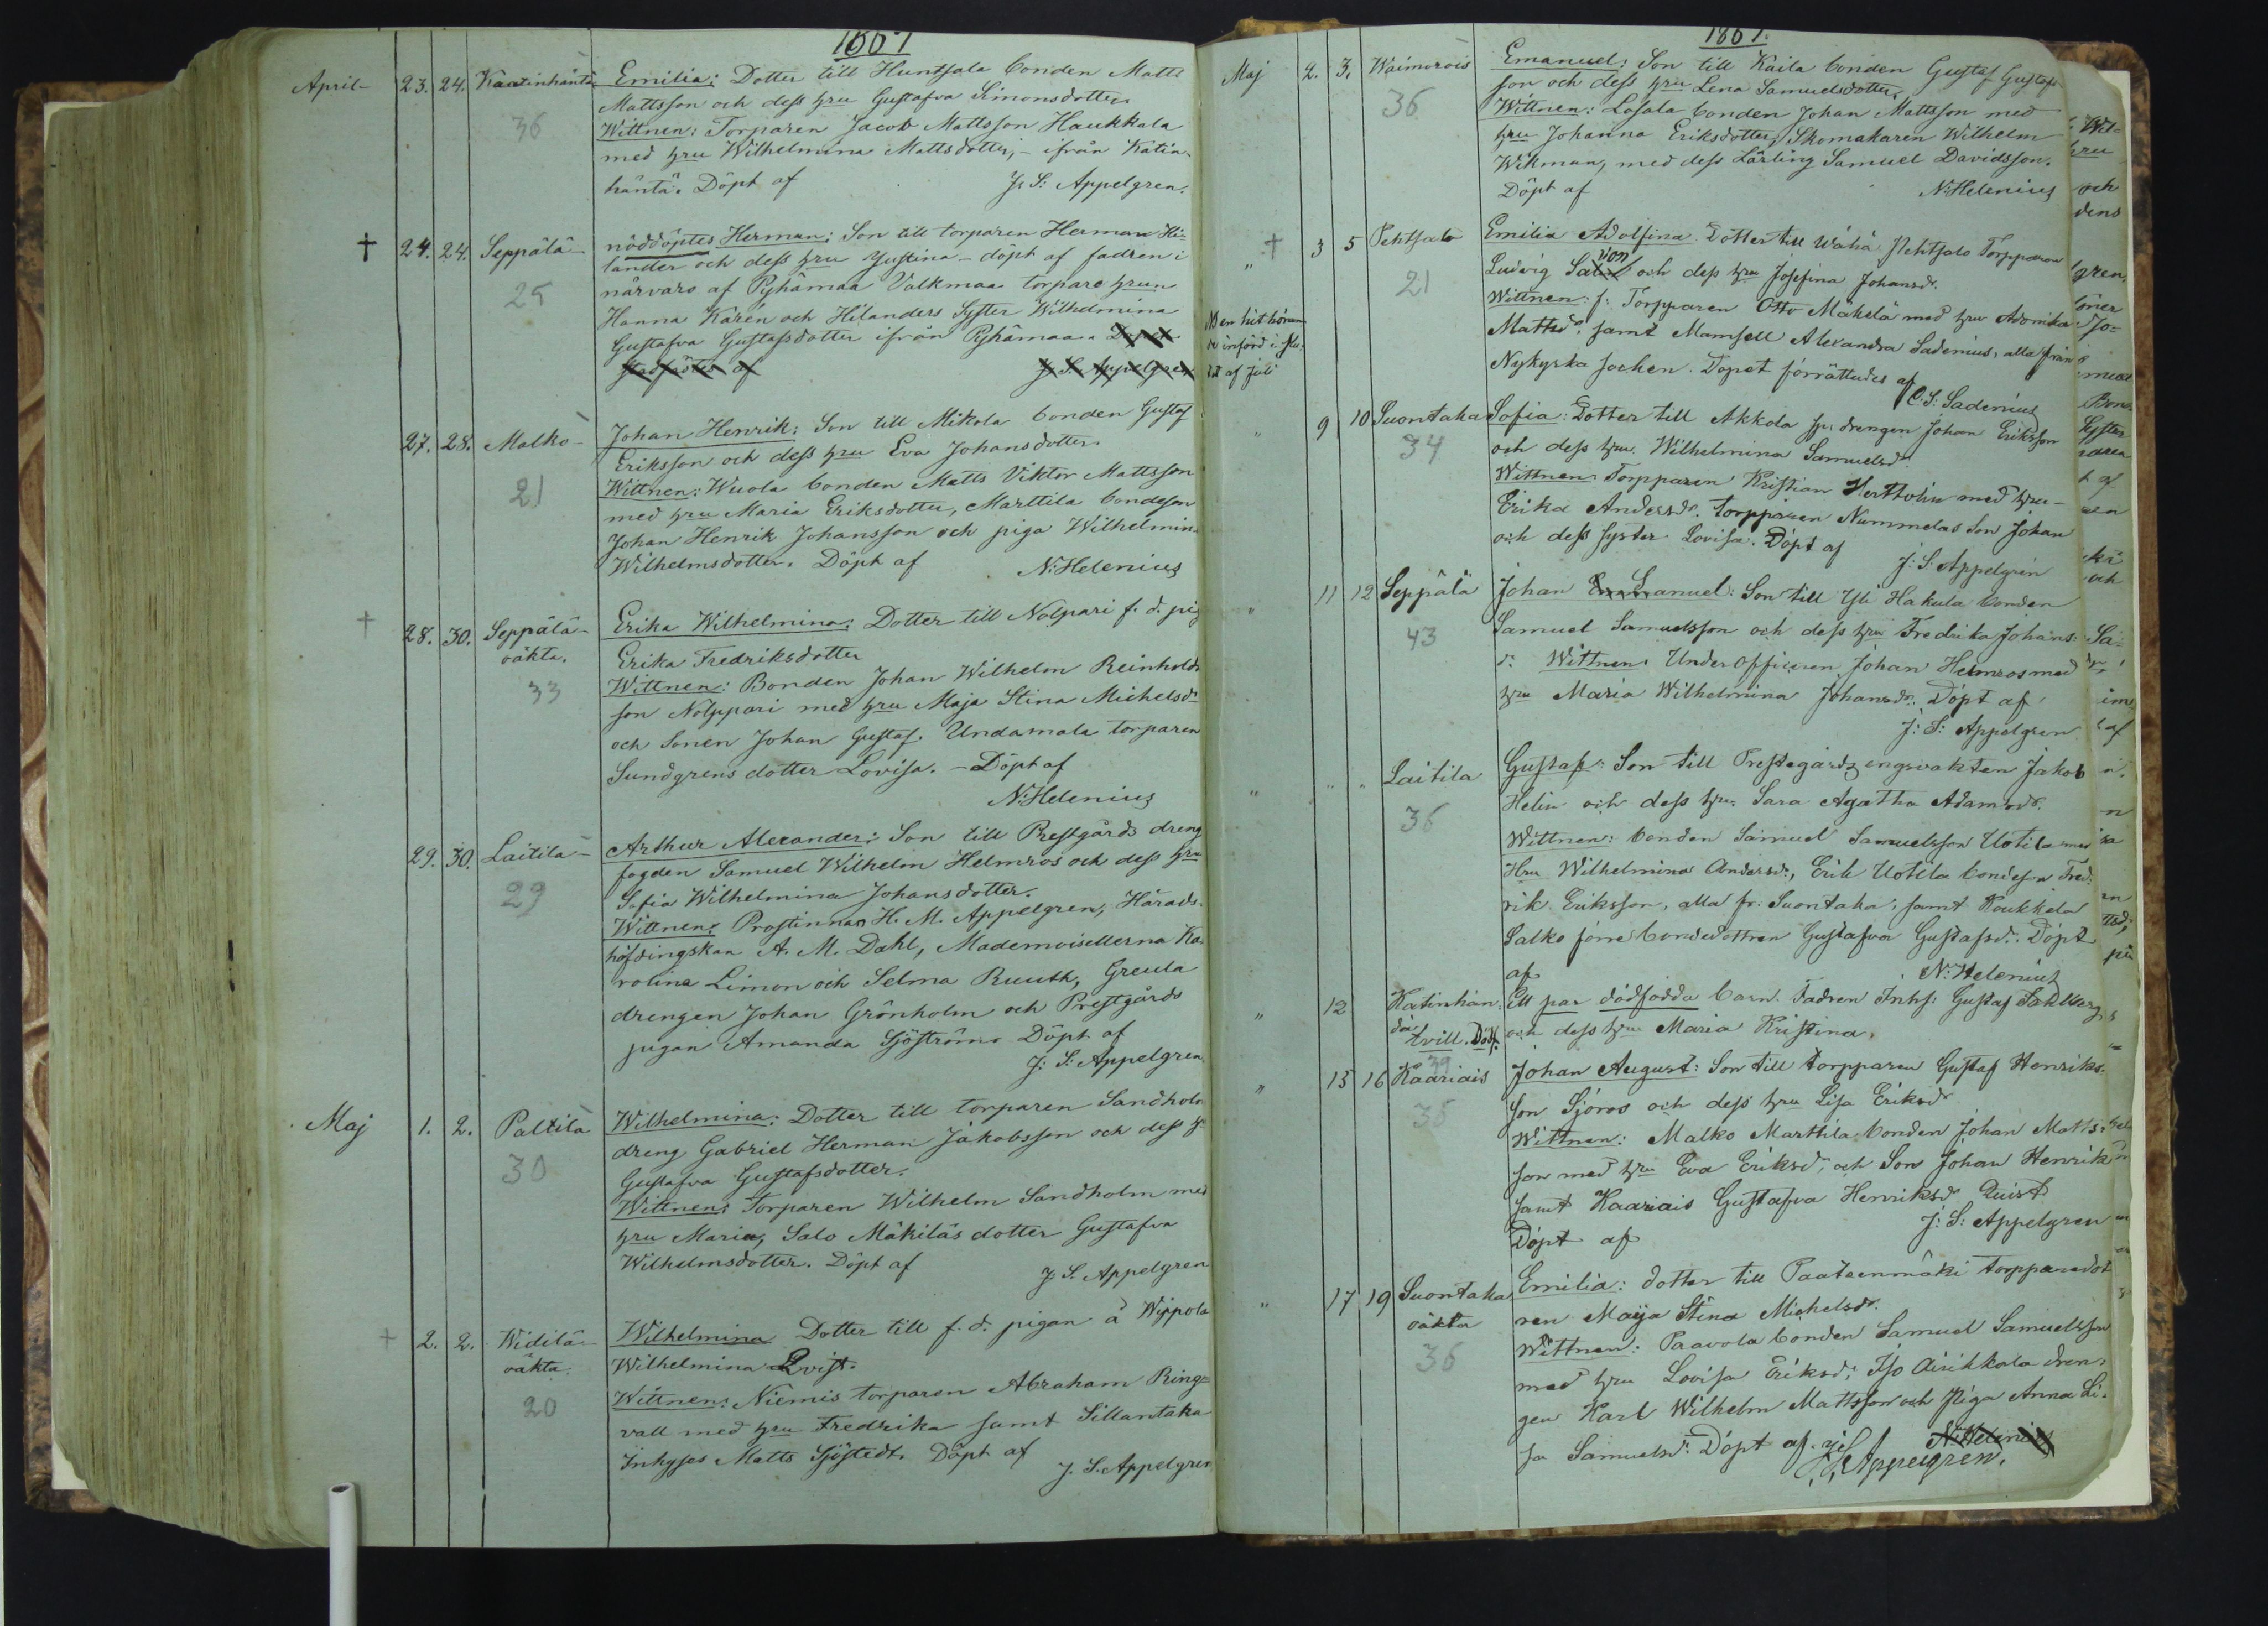 1867
April 23. 24. Kaatinhäntä Emilia: Dotter till Huntsala bonden Matts
Mattsson och dess hru Gustafva Simonsdotter
36 Wittnen: Torparen Jacob Mattsson Haukkala
med hru Wilhelmina Mattsdotter, – ifrån Katin-
häntä. Döpt af J. S: Appelgren.
† 24. 24. Seppälä nöddöptes Herman: Son till torparen Herman Hi-
lander och dess hru Justina – döpt af fadren i
25 närvaro af Pyhämaa Valkmaa torpare hrun
Hanna Karen och Hilanders Syster Wilhelmina
Gustafva Gustafsdotter ifrån Pyhämaa. Dopet
stadfästes af J. S. Appelgren
27. 28. Malko Johan Henrik: Son till Mikola bonden Gustaf
Eriksson och dess hru Eva Johansdotter
21 Wittnen: Wuola bonden Matts Viktor Mattsson
med hru Maria Eriksdotter, Marttila bondeson
Johan Henrik Johansson och piga Wilhelmina
Wilhelmsdotter. Döpt af N: Helenius
† 28. 30. Seppälä Erika Wilhelmina: Dotter till Nolpari f. d. pig
oäkta. Erika Fredriksdotter
33 Wittnen: Bonden Johan Wilhelm Reinholds
son Nolppari med hru Maja Stina Michelsdr
och Sonen Johan Gustaf. Undamala torparen
Sundgrens dotter Lovisa. – Döpt af
N: Helenius
29. 30. Laitila Arthur Alexander: Son till Prestgårds dreng
fogden Samuel Wilhelm Helmros och dess hru
29 Sofia Wilhelmina Johansdotter.
Wittnen: Prostinnan H. M. Appelgren, Härads-
höfdingskan A. M. Dahl, Mademoisellerna Ka-
rolina Limon och Selma Ruuth, Greula
drengen Johan Grönholm och Prestgårds
pigan Amanda Sjöström. Döpt af
J: S: Appelgren
Maj 1. 2. Paltila Wilhelmina: Dotter till torparen Sandholm
dreng Gabriel Herman Jakobsson och dess h
30 Gustafva Gustafsdotter.
Wittnen: Torparen Wilhelm Sandholm med
hru Maria, Salo Mäkiläs dotter Gustafva
Wilhelmsdotter. Döpt af J. S. Appelgren
† 2. 2. Widilä Wilhelmina Dotter till f. d. pigan å Wippola
oäkta. Wilhelmina Qvist.
20 Wittnen: Niemis torparen Abraham Ring-
vall med hru Fredrika samt Sillantaka
Inhyses Matts Sjöstedt. Döpt af
J. S. Appelgren
1867.
Maj 2. 3. Waimorois Emanuel: Son till Kaila bonden Gustaf Gustafs-
son och dess hru Lena Samuelsdotter.
36 Wittnen: Losala bonden Johan Mattsson med
hru Johanna Eriksdotter, Skomakaren Wilhelm
Wikman, med dess Lärling Samuel Davidsson.
Döpt af N: Helenius
" † 3 5 Pehtsalo Emilia Adolfina. Dotter till Wähä Pehtsalo Torpparen
Ludvig Salon och dess hru Josefina Johansdr.
21 Wittnen: f. Torpparen Otto Mäkelä med hru Adonika
Mattsdr, samt Mamsell Alexandra Sadenius, alla från
Nykyrka socken. Dopet förrättades af
C: S: Sadenius
" 9 10 Suontaka Sofia: Dotter till Akkola drengen Johan Eriksson
34 och dess hru. Wilhelmina Samuelsdr
Wittnen: Torpparen Kristian Herttolin med hru
Erika Andersdr. torpparen Nummelas Son Johan
och dess syster Lovisa. Döpt af
J: S: Appelgren
" 11 12 Seppälä Johan Emanuel: Son till Yli Hakula bonden
43 Samuel Samuelsson och dess hru Fredrika Johans-
d: Wittnen: Underofficeren Johan Helmros med
hru Maria Wilhelmina Johansdr. Döpt af
J: S: Appelgren
" " " Laitila Gustaf: Son till Prestegårds engsvakten Jakob
36 Helin och dess hru Sara Agatha Adamsdr.
Wittnen: bonden Samuel Samuelsson Uotila med
Hru Wilhelmina Andersdr, Erik Uotila bondeson Fred-
rik Eriksson, alla fr. Suontaka, samt Koukkela
Salko förre bondedottren Gustafva Gustafsdr. Döpt
af N: Helenius
" 12 Katinhän- Ett par dödfödda barn. Fadren Inhs: Gustaf Sahlberg
tvill. Dödf. och dess hru Maria Kristina.
" 15 16 Kaariais Johan August: Son till torpparen Gustaf Henriks-
35 son Sjöros och dess hru Lisa Eriksdr
Wittnen: Malko Marttila bonden Johan Matts-
son med hru Eva Eriksdr, och Son Johan Henrik
samt Kaariais Gustafva Henriksdr Quist
Döpt af J: S: Appelgren
" 17 19 Suontaka Emilia: dotter till Paateenmäki torpparedot
oäkta ren Maija Stina Michelsdr.
36 Wittnen: Paavola bonden Samuel Samuelsson
med hru Lovisa Eriksd; Iso Äirikkala dren-
gen Karl Wilhelm Mattsson och Piga Anna Li-
sa Samuelsdr: Döpt af N: Helenius
J. S. Appelgren.